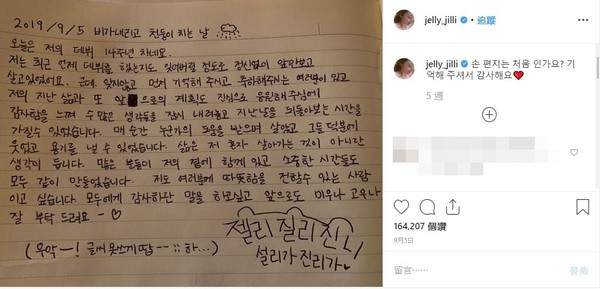 2019 / 9 / 5 비가내리고 천둥이 치는 날
오늘은 저의 데뷔 14주년 차네요.
저는 최근 언제 데뷔를 했는지도 잊어버릴 정도로 정신없이 앞만보고
살고있었어요. 근데 잊지않고 먼저 기억해 주시고 축하해주시는 여러분이 있고
저의 지난 삶과 또 앞으로의 계획도 진심으로 응원해주심에
감사함을 느껴 수많은 생각들을 잠시 내려놓고 지난날을 되돌아보는 시간을
가질수 있었습니다. 매 순간 누군가의 도움을 받으며 살았고 그들 덕분에
웃었고 용기를 낼 수 있었습니다. 삶은 저 혼자 살아가는 것이 아니란
생각이 듭니다. 많은 분들이 저의 곁에 함께 있고 소중한 시간들도
모두 같이 만들었습니다. 저도 여러분께 따뜻함을 전할수 있는 사람
이고 싶습니다. 모두에게 감사하단 말을 하고싶고 앞으로도 미우나 고우나
잘 부탁 드려요 ~ ♡
( 우악 ~ ! 글씨 못쓰게땀 -- ;; 하... )
젤리 질리 진리
설리가 진리가♥
jelly_jilli • 追蹤
jelly_jilli 손 편지는 처음 인가요? 기억해 주셔서 감사해요❤
5 週
164,207 個讚
9月5日
留言……
發佈